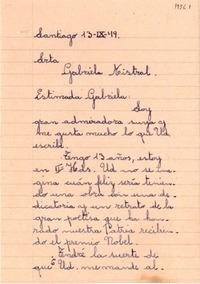 1926 1
Santiago 13-IX-49.
Srta
Gabriela Mistral.
Estimada Gabriela:
Soy
gran admiradora suya y
me gusta mucho lo que Ud.
escribe.
Tengo 13 años, estoy
en IIº Hds. Ud no se ima
gina cuán feliz sería tenien
do una obra con una de
dicatoria y un retrato de la
gran poetisa que ha hon
rado nuestra Patria recibien
do el premio Nobel.
Tendré la suerte de
que Ud. me mande al